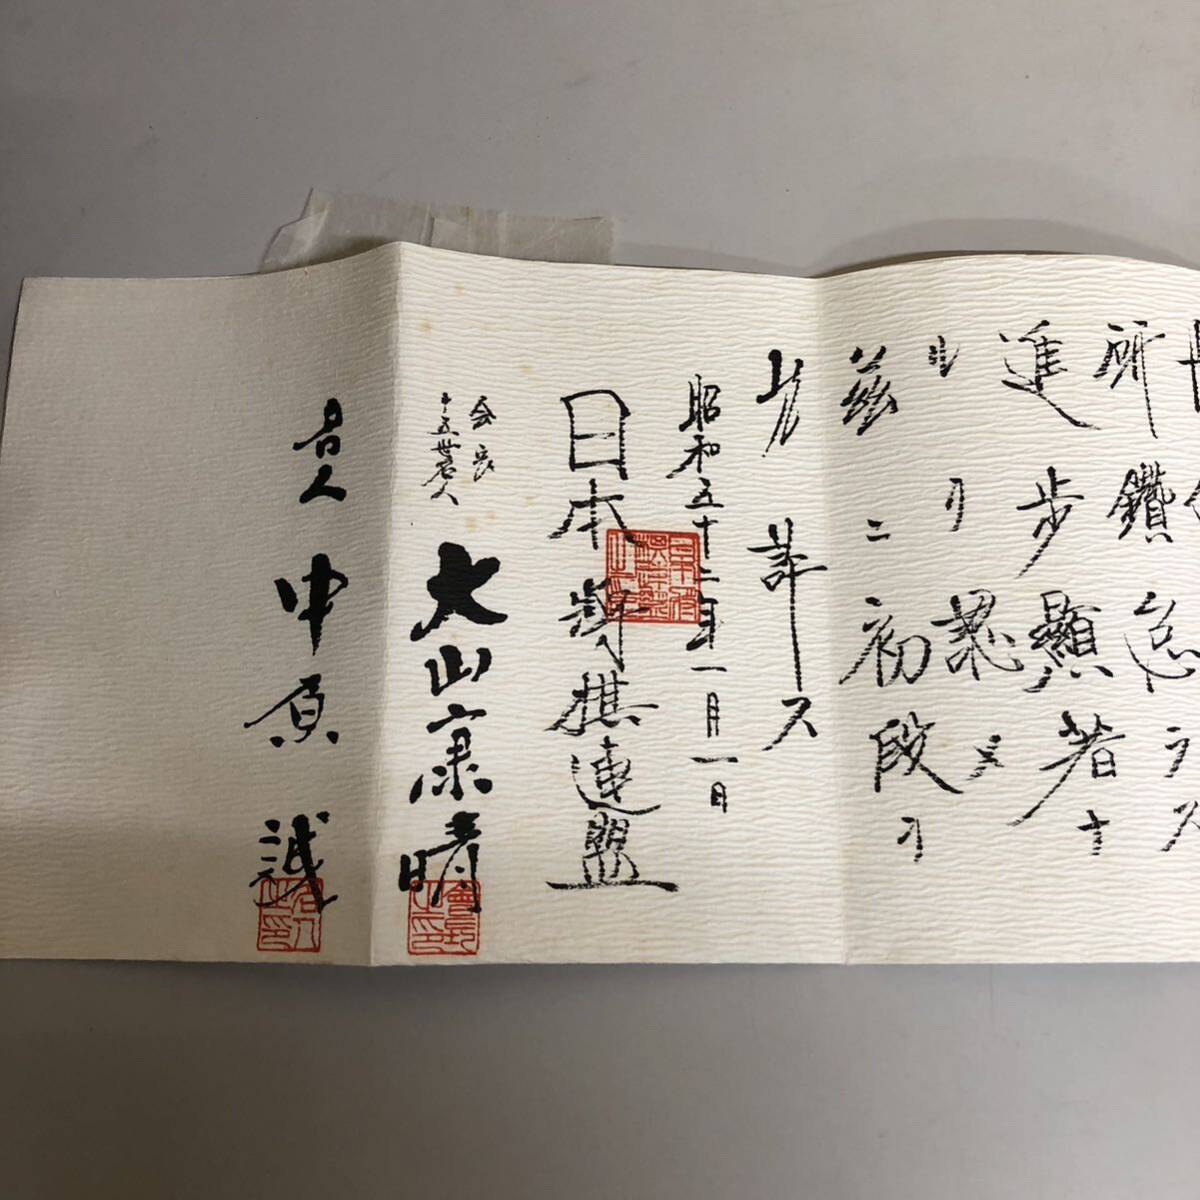 研鑽怠ラス
進歩顯著ナ
ルヲ認メ
茲ニ初段ヲ
允許ス
昭和五十二年一月一日
日本将棋連盟
会長
十五世名人
大山康晴
名人 中原誠